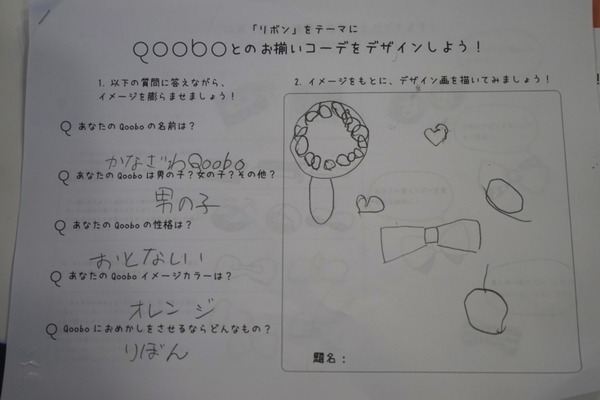 「リボン」をテーマに
Qooboとのお揃いコーデをデザインしよう!
1. 以下の質問に答えながら、
イメージを膨らませましょう!
Q あなたの Qoobo の名前は?
かなざわQoobo
Q あなたの Qoobo は男の子?女の子?その他?
男の子
Q あなたの Qoobo の性格は?
おとなしい
Q あなたの Qoobo イメージカラーは?
オレンジ
Q Qoobo におめかしをさせるならどんなもの?
りぼん
2. イメージをもとに、デザイン画を描いてみましょう!
題名: